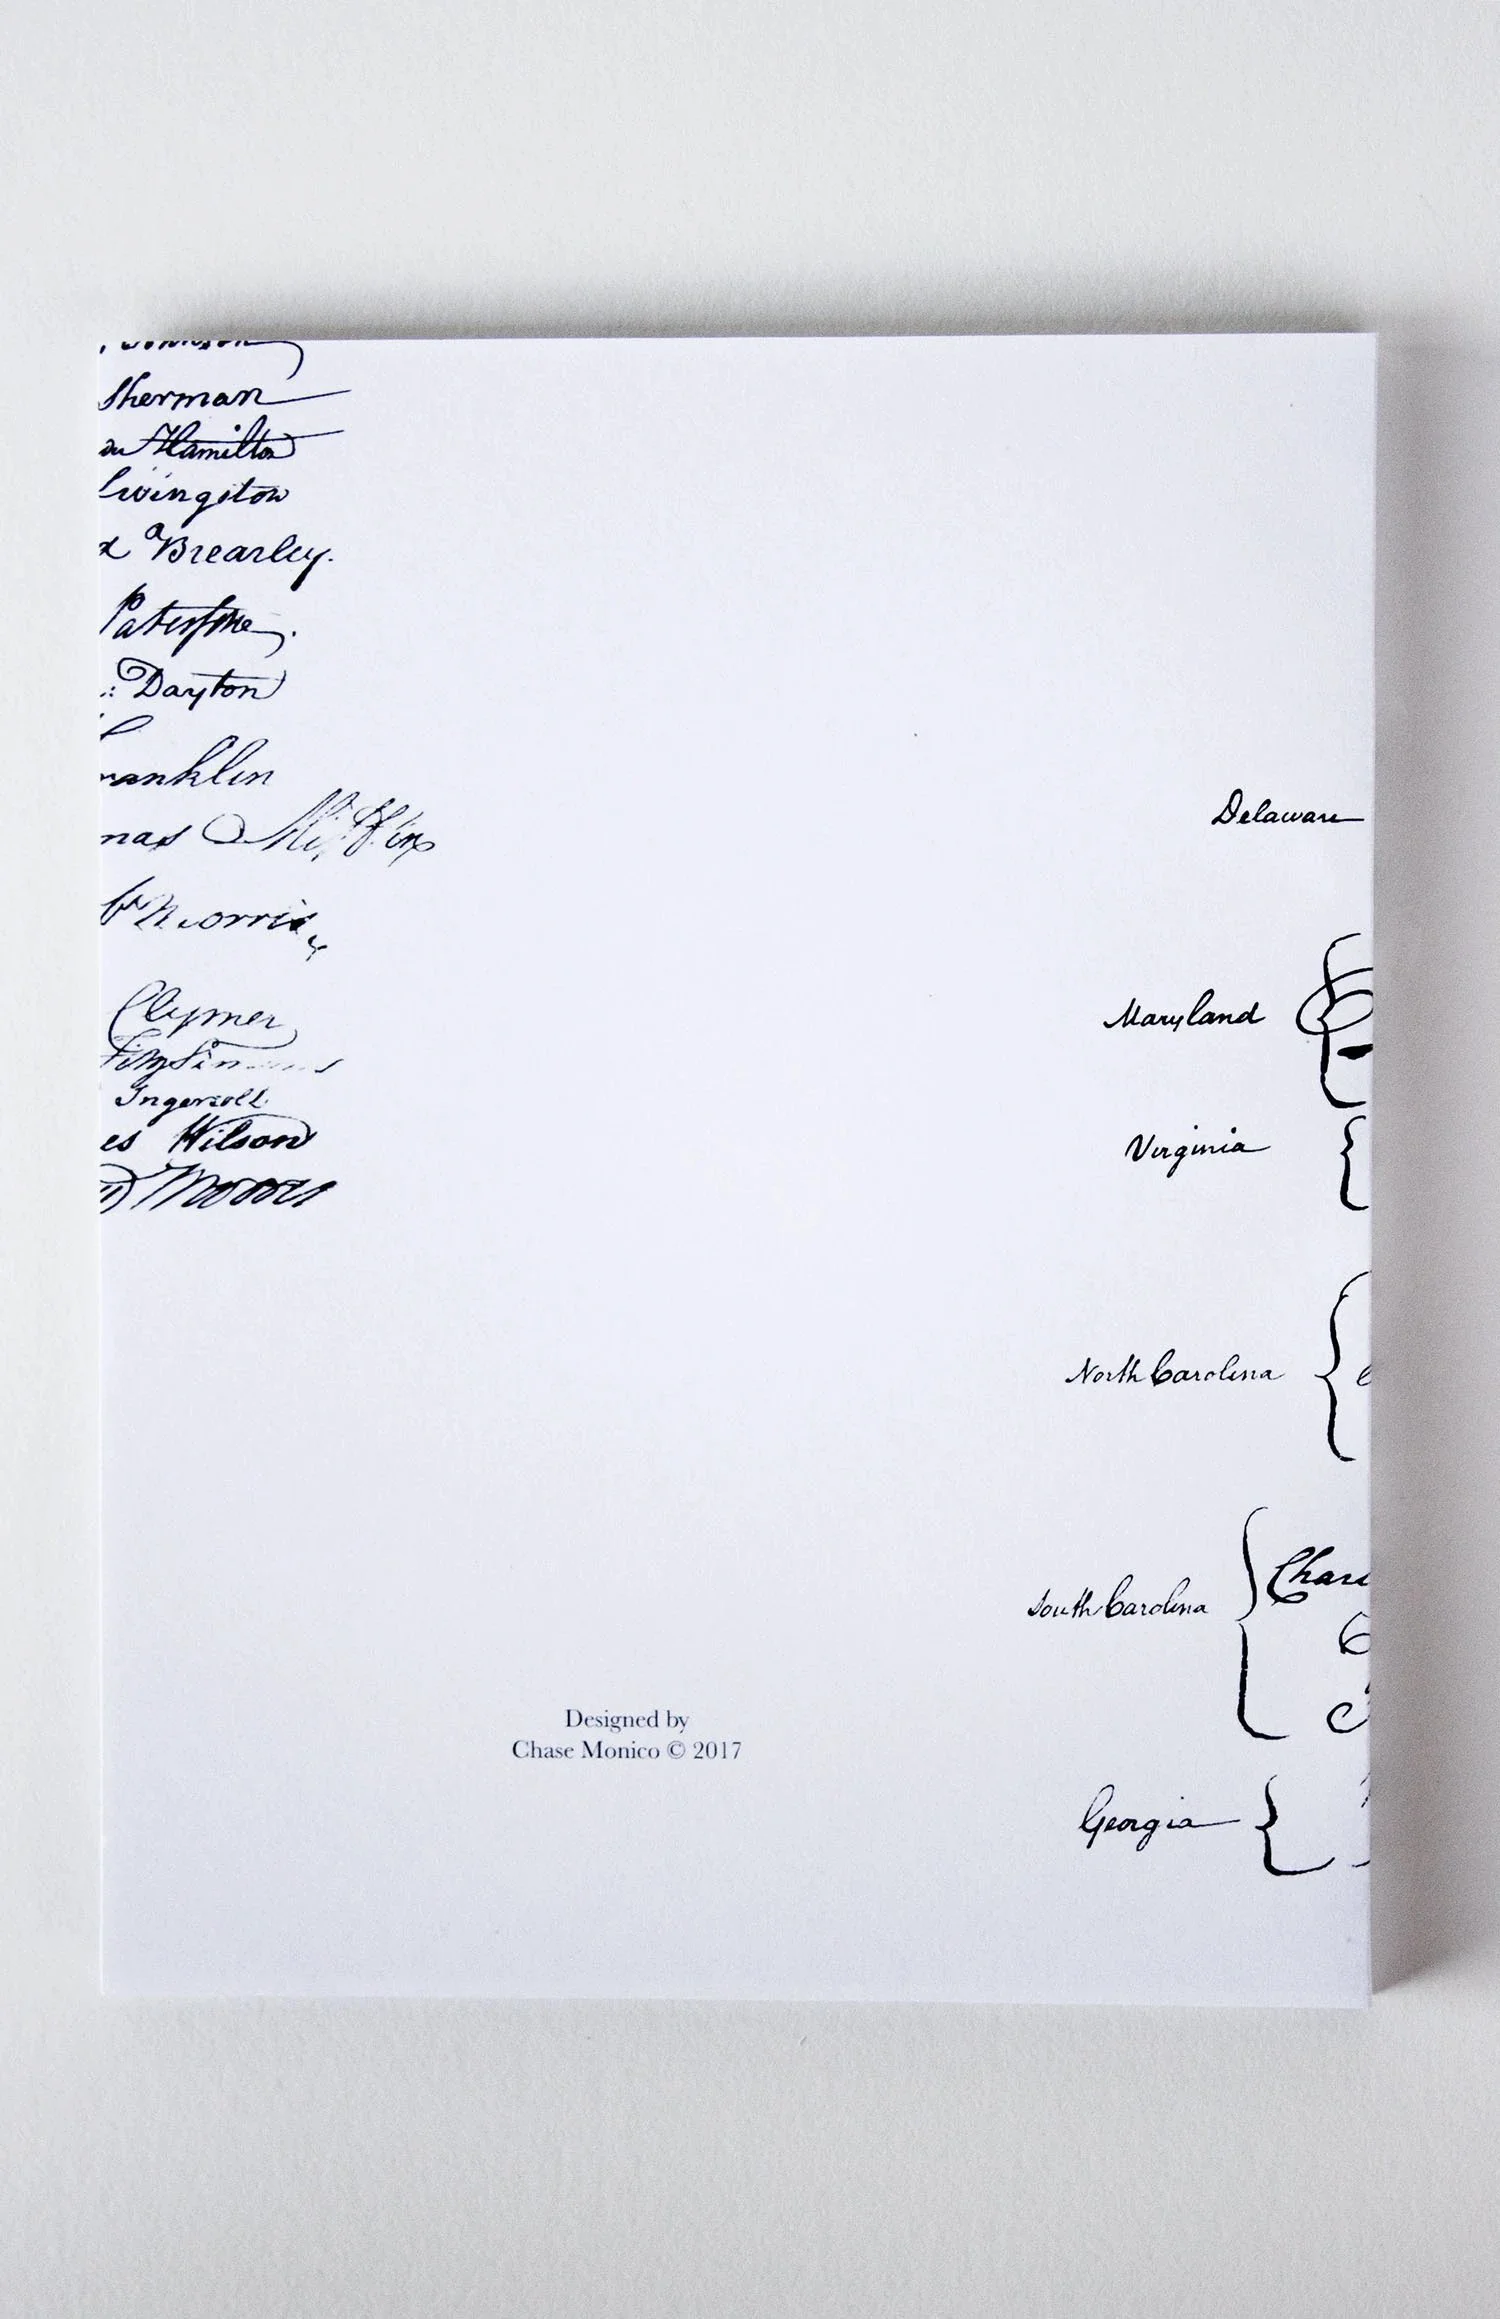 Johnson
Sherman
Hamilton
Livingston
Brearley.
Paterson.
Dayton
ranklin
mas Mifflin
Morris
Clymer
FitzSimons
Ingersoll
es Wilson
Morris
Delaware
Maryland
Virginia
North Carolina
South Carolina
Georgia
Designed by
Chase Monico © 2017